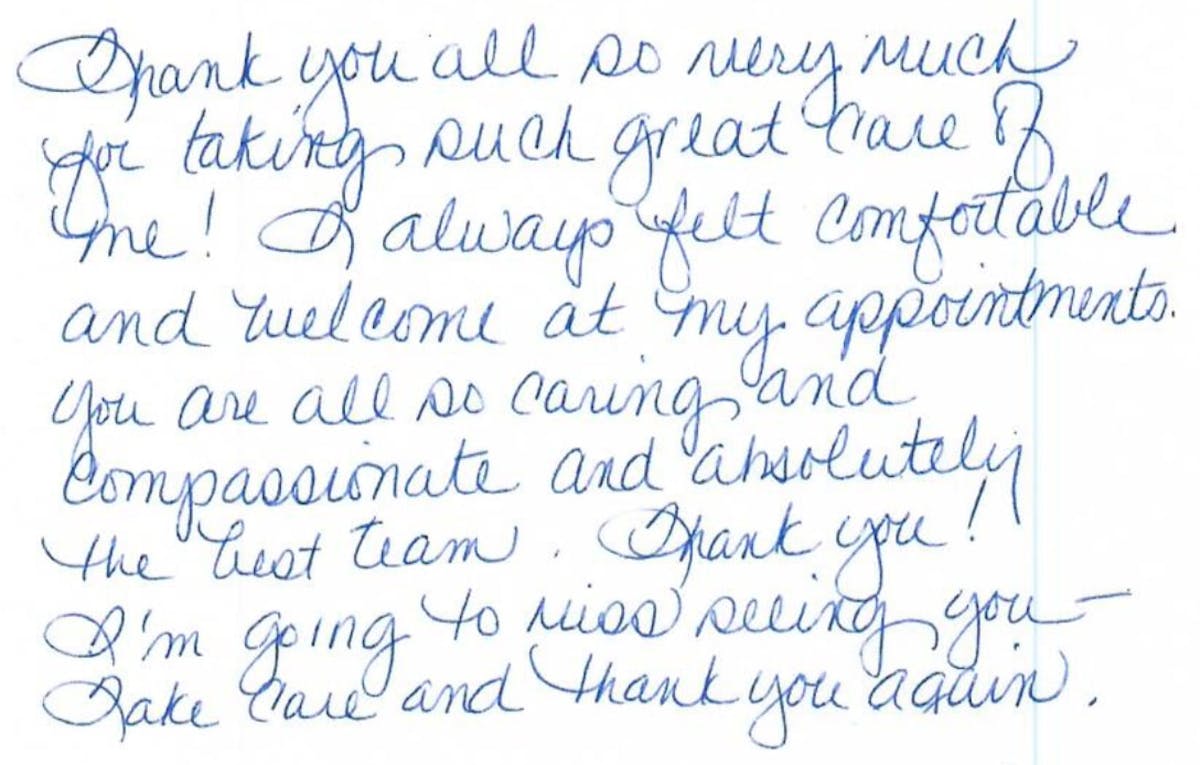 Thank you all so very much
for taking such great care of
me! I always felt comfortable
and welcome at my appointments.
You are all so caring and
compassionate and absolutely
the best team. Thank you!
I'm going to miss seeing you —
Take care and thank you again.